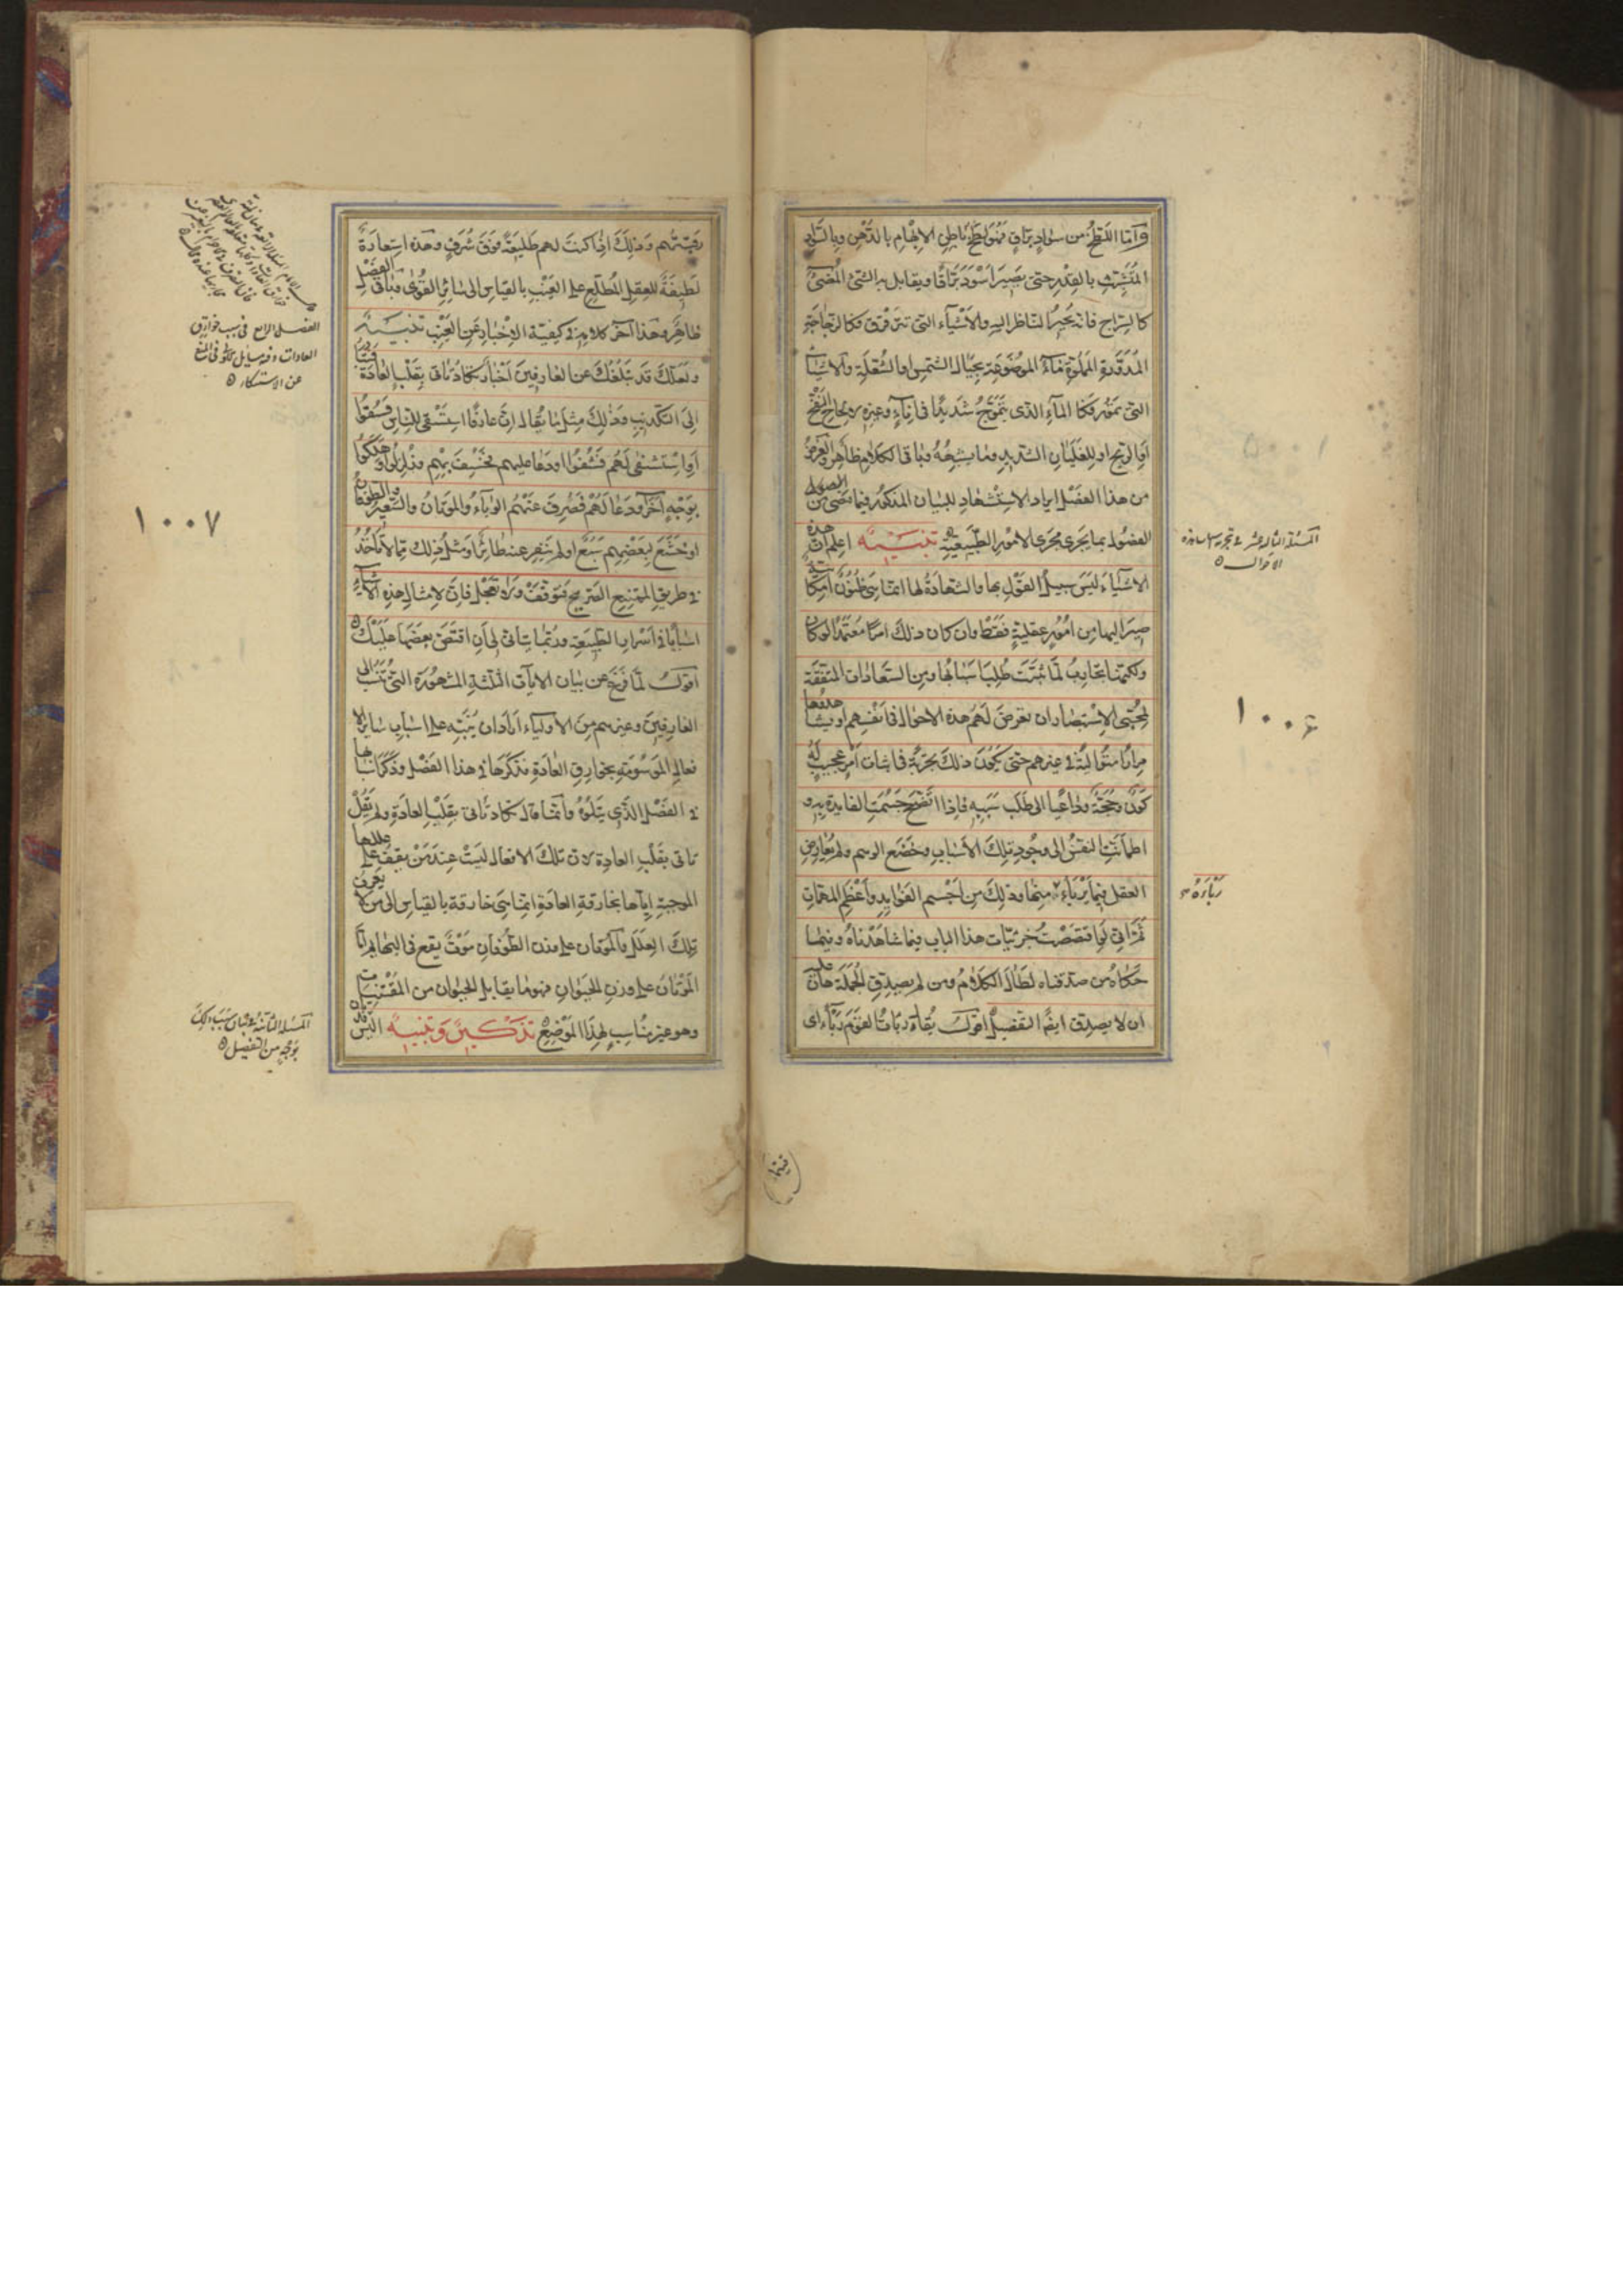 وأما اللطخ من سواد براق فهو لطخ باطن الإبهام بالدهن وبالسواد
المتشبث بالقدر حتى يصير أسود براقا ويقابل به الشئ المضئ
كالسراج فانه يحير الناظر اليه والأشياء التى تترقرق فكالزجاجة
المدورة المملوة ماء الموضوعة بحيال الشمس او الشعلة والاشياء
التى تمور فكالماء الذى يتموج شديدا فى اناء وغيره لإلحاح النفخ
أو الريح او للغليان الشديد وما يشبهه وباقى الكلام ظاهر والغرض
من هذا الفصل ايراد الاستشهاد للبيان المذكور فيما مضى من
الفصول بما يجرى مجرى الامور الطبيعية تنبيه اعلم ان هذه
الاشياء ليس سبيل القول بها والشهادة لها انما هى ظنون امكانية
صير اليها من امور عقلية فقط وان كان ذلك امرا معتمدا لو كان
ولكنها تجارب لما ثبتت طلب اسبابها ومن السعادات المتفقة
لمحبى الاستبصار ان تعرض لهم هذه الاحوال فى أنفسهم او يشاهدوها
مرارا متوالية فى غيرهم حتى يكون ذلك تجربة فى اثبات أمر عجيب له
كون وحجة وداعيا الى طلب سببه فاذا اتضح جسمت الفايدة به و
اطمأنت النفس الى وجود تلك الأسباب وخضع الوهم ولم يعارض
العقل فيما يربأ ربأه منها وذلك من اجسم الفوايد وأعظم المهمات
ثم انى لو اقتصصت جزئيات هذا الباب فيما شاهدناه وفيما
حكاه من صدقناه لطال الكلام ومن لم يصدق الجملة هان عليه
ان لا يصدق ايضا التفصيل اقول يقال ربأت القوم ربأ اى
المسئلة الثالثة عشر فى تجربة هذه
الاحوال
١٠٠٦
ربأه
فيتها
رقبتهم وذلك اذا كنت لهم طليعة فوق شرف وهذه استعارة
لطيفة للعقل المطلع على الغيب بالقياس الى سائر القوى وباقى الفصل
ظاهر وهذا آخر كلامه فى كيفية الإخبار عن الغيب تنبيه
ولعلك قد تبلغك عن العارفين اخبار تكاد تاتى بقلب العادة فتبادر
إلى التكذيب وذلك مثل ما يقال ان عارفا استسقى للناس فسقوا
أو استشفى لهم فشفوا او دعا عليهم فخسف بهم وزلزلوا او هلكوا
بوجه آخر ودعا لهم فصرف عنهم الوباء والموتان والسعير والطوفان
او خشع لبعضهم سبع او لم ينفر عنه طائر او مثل ذلك مما لا تأخذ
فى طريق الممتنع الصريح فتوقف ولا تعجل فان لامثال هذه الأشياء
اسبابا فى أسرار الطبيعة وربما يتأتى لى أن اقتص بعضها عليك
أقول لما فرغ عن بيان الايات الثلثة المشهورة التى تنسب الى
العارفين وغيرهم من الاولياء أراد ان ينبه على اسباب ساير الا
فعال الموسومة بخوارق العادة فذكرها فى هذا الفصل وذكر اسبابها
فى الفصل الذى يتلوه وانما قال تكاد تأتى بقلب العادة ولم يقل
تاتى بقلب العادة لان تلك الافعال ليست عند من يقف على عللها
الموجبة إياها بخارقة العادة انما هى خارقة بالقياس الى من لا يعرف
تلك العلل والموتان على وزن الطوفان موت يقع فى البهايم أما
الموتان على وزن الحيوان فهو ما يقابل الحيوان من المقتنيات
وهو غير مناسب لهذا الموضع تذكير وتنبيه أليس قد
الفصل الرابع فى سبب خوارق
العادات وفيه مسايل
عن الاستنكار
١٠٠٧
المسئلة الثانية فى بيان سبب ذلك
بوجه من التفصيل